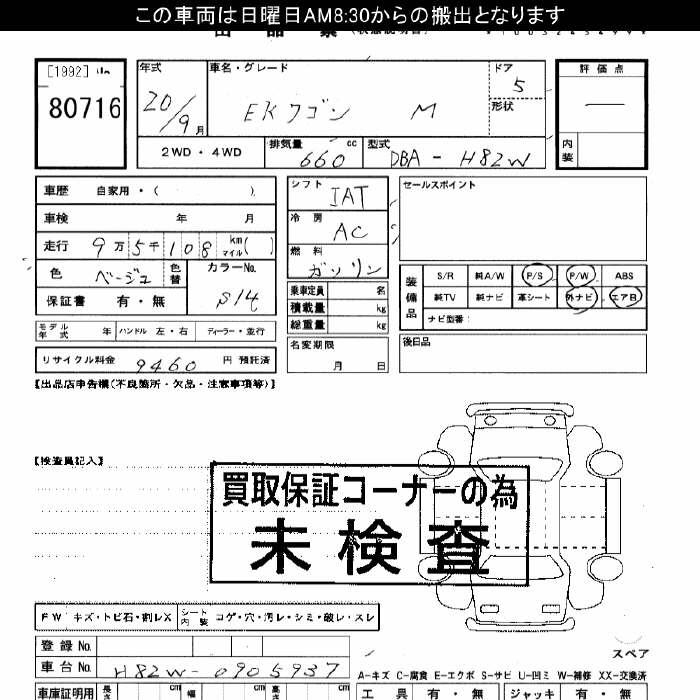 この車両は日曜日AM8:30からの搬出となります
[1992]
80716
年式
20/9月
車名・グレード
EKワゴン M
ドア
5
形状
評価点
—
内装
2WD・4WD
排気量 660 cc
型式 DBA-H82W
車歴 自家用・( ).
車検 年 月
走行 9万5千108 km マイル( )
色 ベージュ 色替 カラーNo. S14
保証書 有・無
モデル年式 年 ハンドル 左・右 ディーラー・並行
リサイクル料金 9460 円 預託済
シフト IAT
冷房 AC
燃料 ガソリン
乗車定員 名
積載量 kg
総重量 kg
名変期限 月 日
セールスポイント
装備品
S/R 純A/W P/S P/W ABS
純TV 純ナビ 革シート 外ナビ エアB
ナビ型番:
後日品
【出品店申告欄(不良箇所・欠品・注意事項等)】
【検査員記入】
買取保証コーナーの為
未検査
FW キズ・トビ石・割レX シート内装 コゲ・穴・汚レ・シミ・破レ・スレ
登録No.
車台No. H82W-0905937
スペア
A-キズ C-腐食 E-エクボ S-サビ U-凹ミ W-補修 XX-交換済
車庫証明用 長さ cm 幅 cm 高さ cm
工具 有・無 ジャッキ 有・無